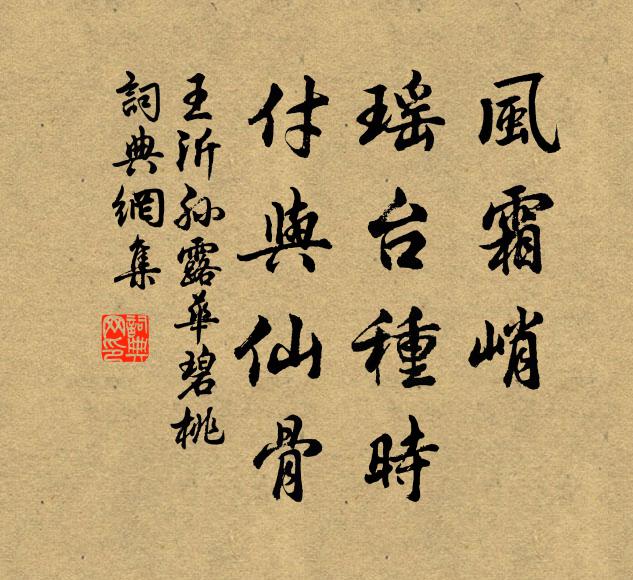 風霜峭
瑶台種時
付與仙骨
王沂孫露華碧桃
詞典網集
詞典網印